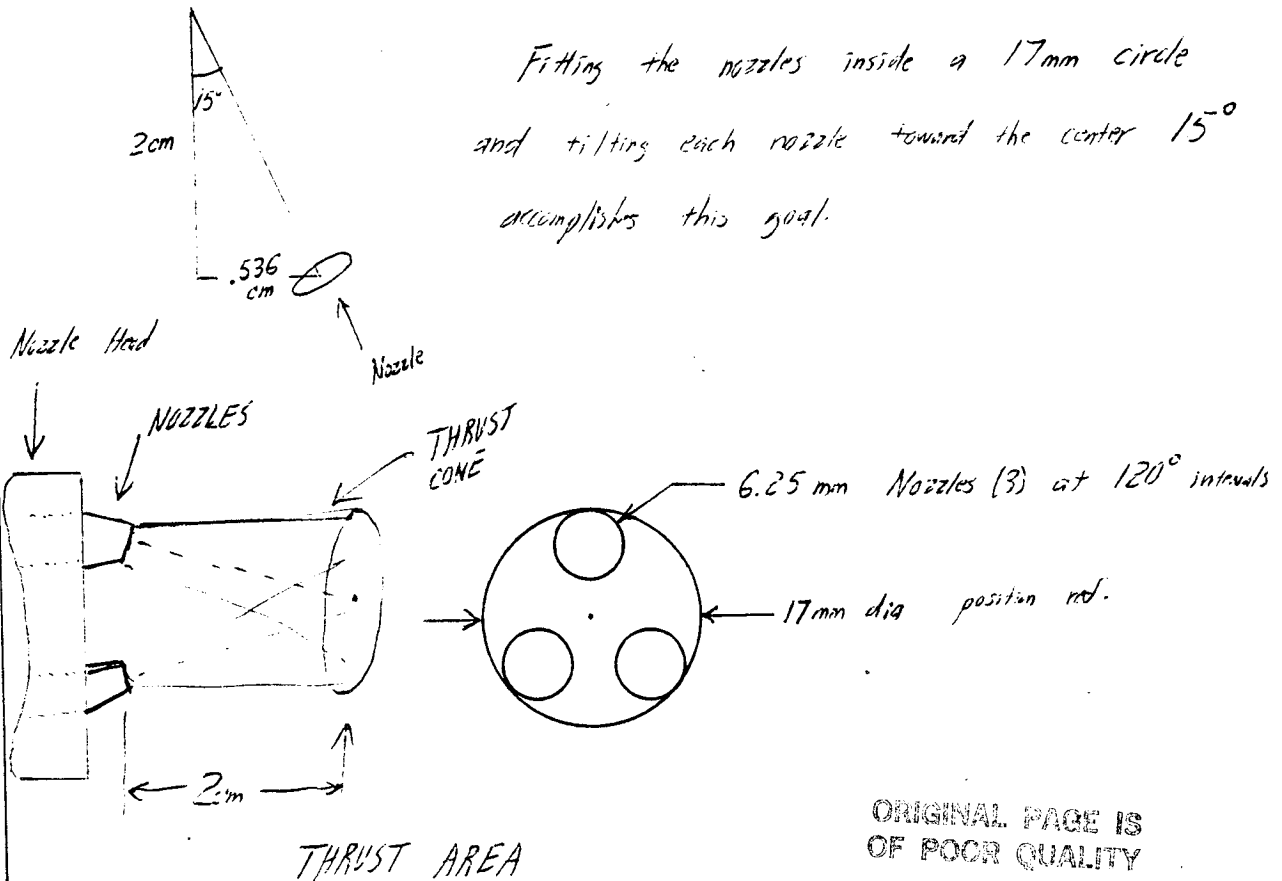 Fitting the nozzles inside a 17mm circle
and tilting each nozzle toward the center 15°
accomplishes this goal.
15°
2cm
.536
cm
Nozzle
Nozzle Head
NOZZLES
THRUST
CONE
6.25 mm Nozzles (3) at 120° intervals
17mm dia position
2cm
THRUST AREA
ORIGINAL PAGE IS
OF POOR QUALITY